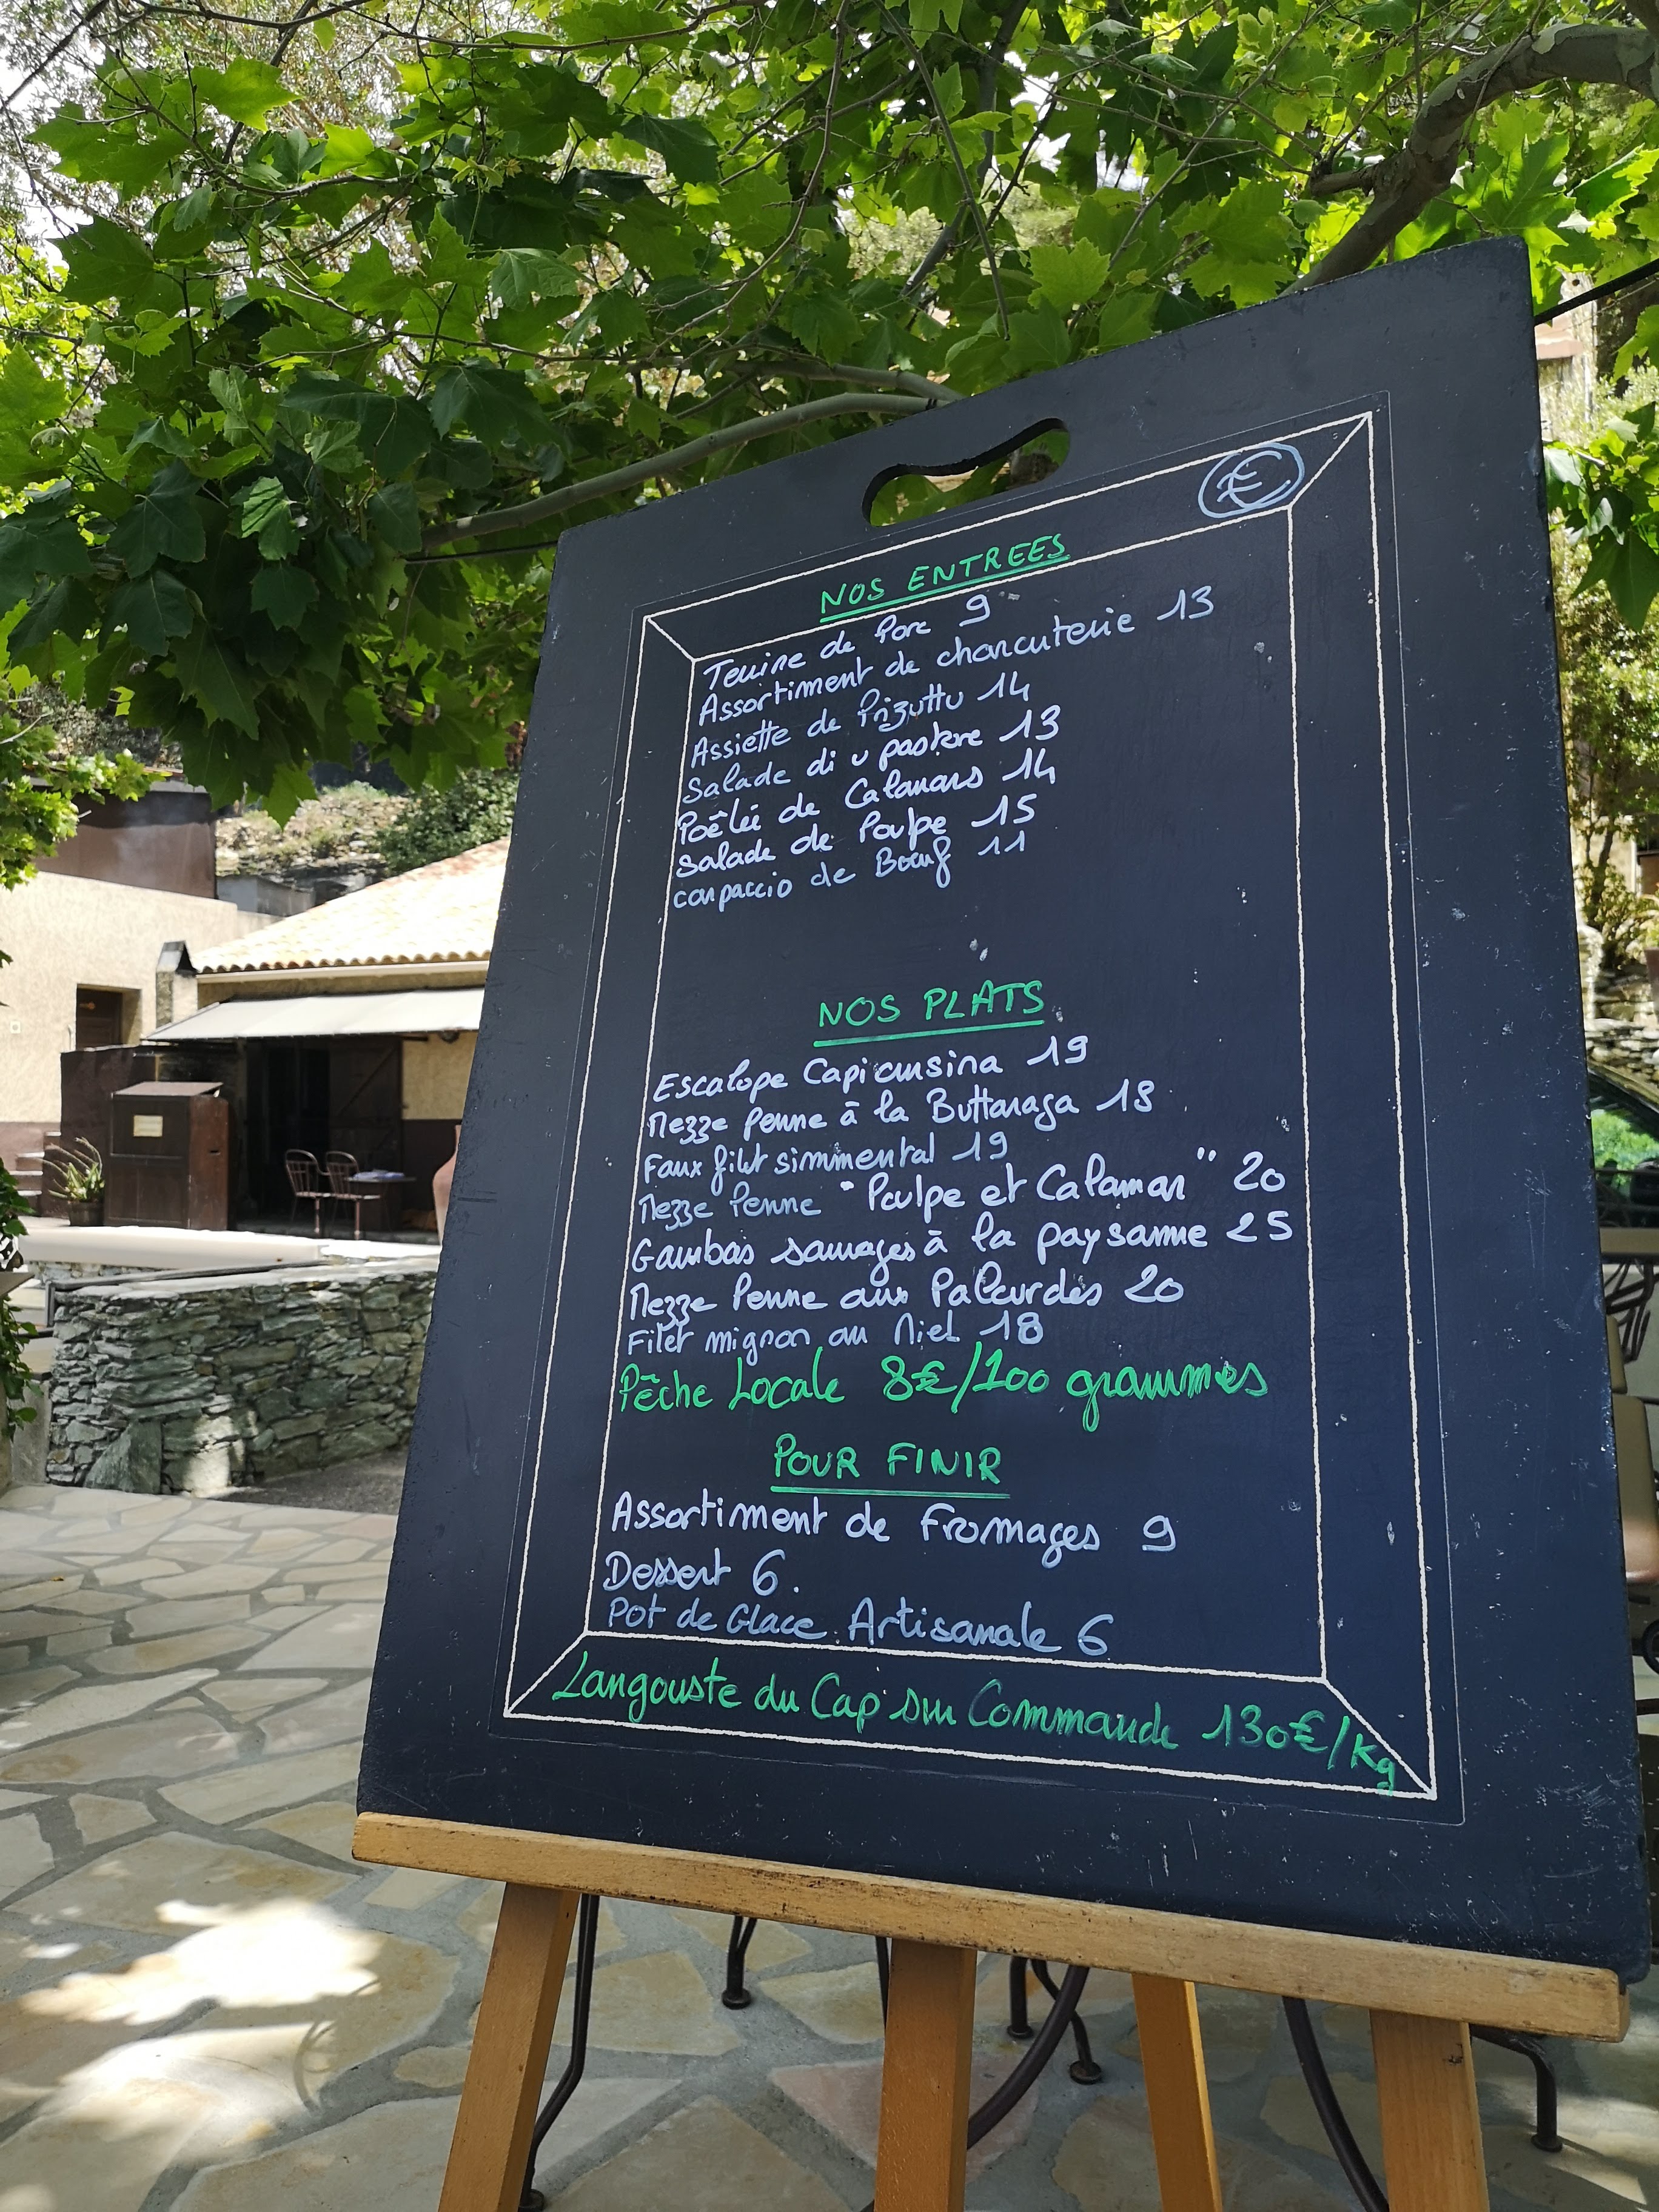 €
NOS ENTREES
Terrine de Porc 9
Assortiment de charcuterie 13
Assiette de Prizuttu 14
Salade di u pastore 13
Poêlée de Calamars 14
Salade de Poulpe 15
carpaccio de Bœuf 11
NOS PLATS
Escalope Capicursina 19
Mezze Penne à la Buttaraga 18
Faux filet simmental 19
Mezze Penne "Poulpe et Calamar" 20
Gambas sauvages à la paysanne 25
Mezze Penne aux Palourdes 20
Filet mignon au Miel 18
Pêche Locale 8€/100 grammes
POUR FINIR
Assortiment de Fromages 9
Dessert 6.
Pot de Glace Artisanale 6
Langouste du Cap sur Commande 130€/kg